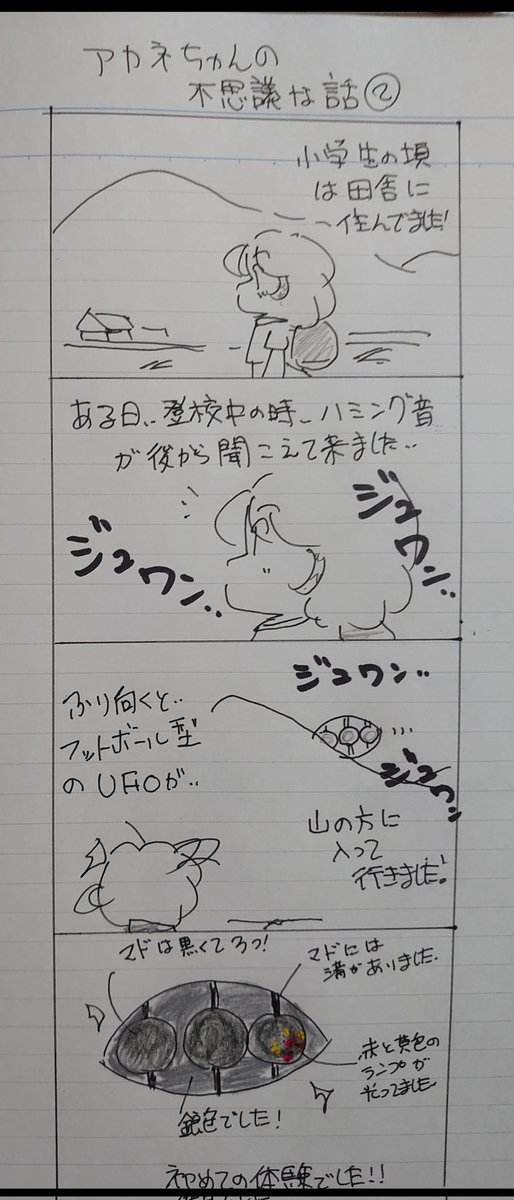 アカネちゃんの
不思議な話②
小学生の頃
は田舎に
住んでました!
ある日‥登校中の時‥ハミング音
が後から聞こえて来ました‥
ジュワン‥
ジュワン‥
ジュワン‥
ふり向くと‥
フットボール型
のUFOが‥
ジュワン
山の方に
入って
行きました!
マドは黒くて3つ!
マドには
溝がありました.
赤と黄色の
ランプが
光ってました
銀色でした!
初めての体験でした!!